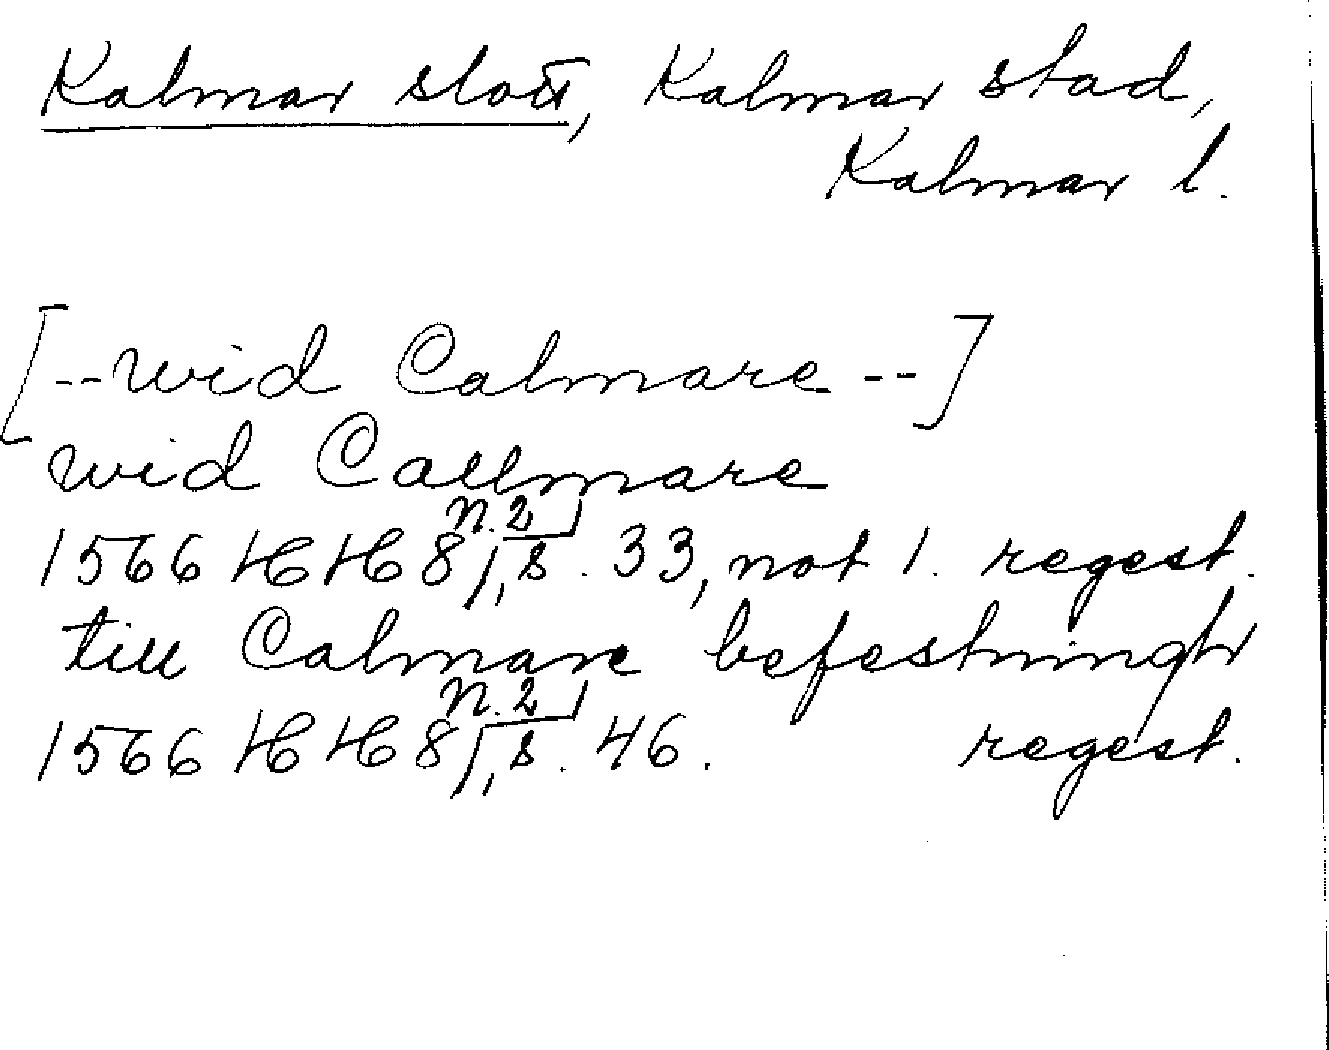 Kalmar slott, Kalmar stad,
Kalmar l.
[--wid Calmare--]
wid Callmare
1566 HH 8, n.2, s. 33, not 1. regest.
till Calmare befestningh
1566 HH 8, n.2, s. 46. regest.